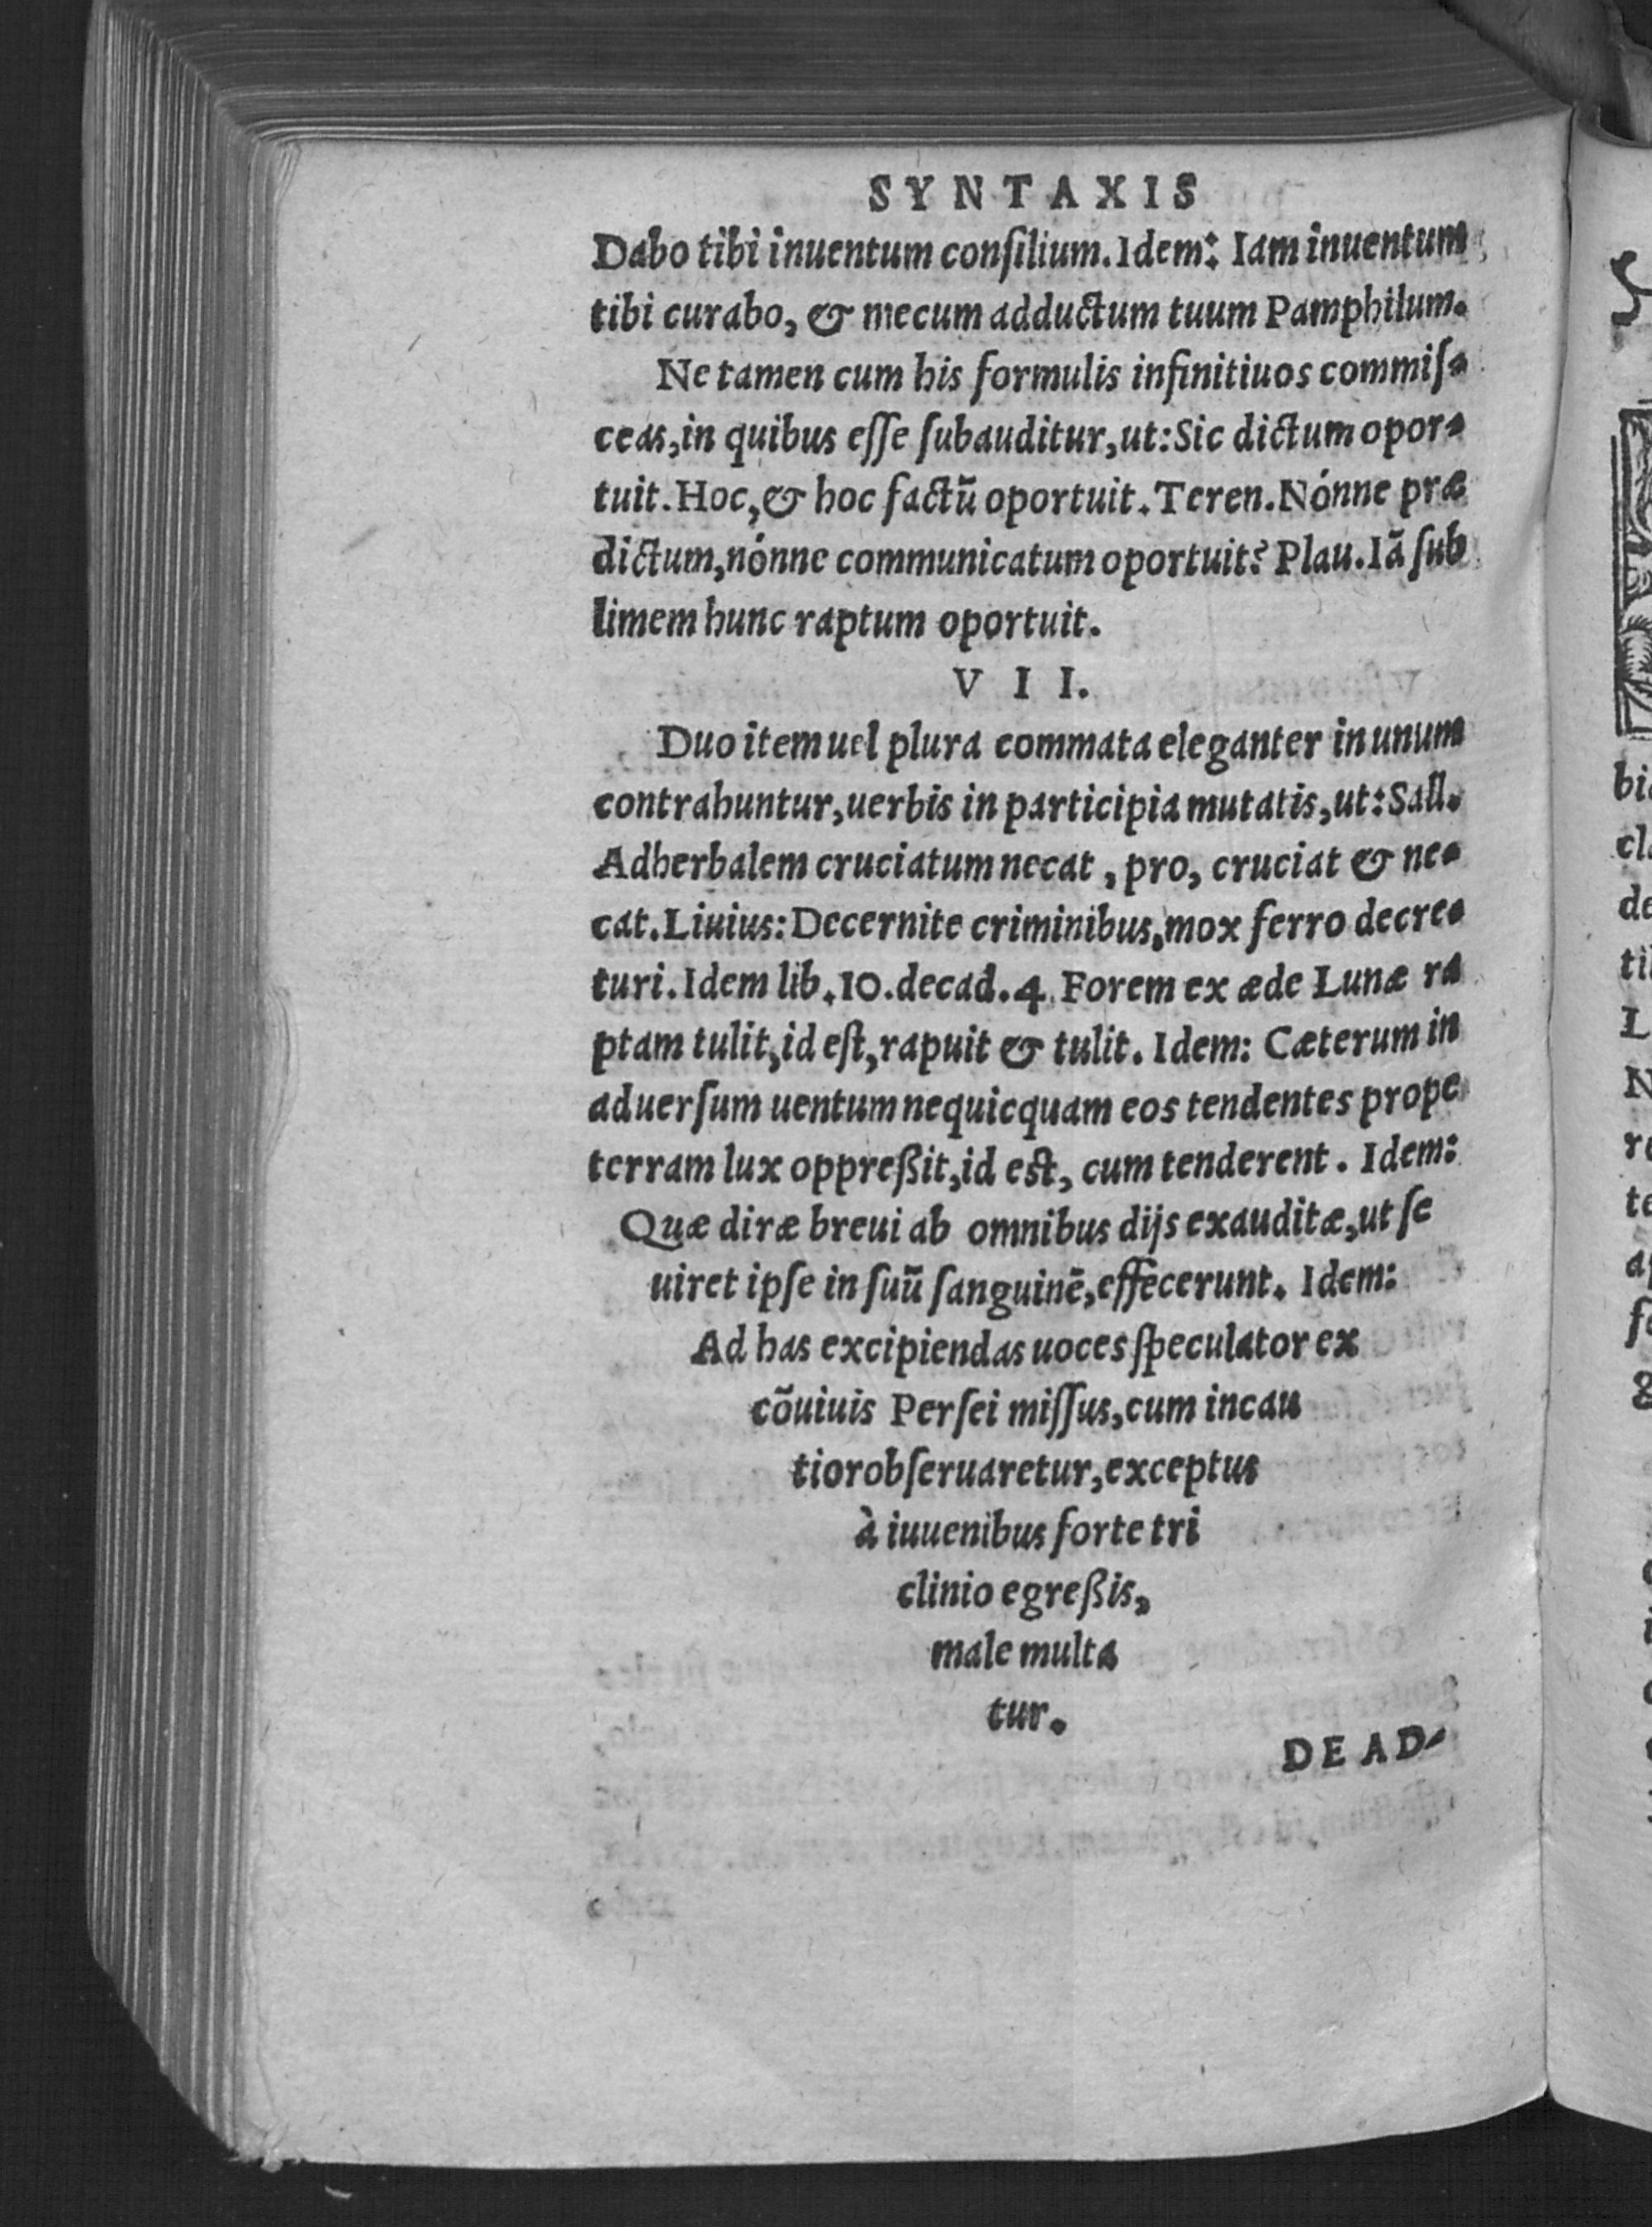 SYNTAXIS
Dabo tibi inuentum conſilium. Idem: Iam inuentum
tibi curabo, & mecum adductum tuum Pamphilum.
Ne tamen cum his formulis infinitiuos commiſ-
ceas, in quibus eſſe ſubauditur, ut: Sic dictum opor-
tuit. Hoc, & hoc factū oportuit. Teren. Nónne præ
dictum, nónne communicatum oportuit? Plau. Iā ſub
limem hunc raptum oportuit.
VII.
Duo item uel plura commata eleganter in unum
contrahuntur, uerbis in participia mutatis, ut: Sall.
Adherbalem cruciatum necat, pro, cruciat & ne-
cat. Liuius: Decernite criminibus, mox ferro decre-
turi. Idem lib. 10. decad. 4. Forem ex æde Lunæ ra
ptam tulit, id eſt, rapuit & tulit. Idem: Cæterum in
aduerſum uentum nequicquam eos tendentes prope
terram lux oppreßit, id eſt, cum tenderent. Idem:
Quæ diræ breui ab omnibus dijs exauditæ, ut ſe
uiret ipſe in ſuū ſanguinē, effecerunt. Idem:
Ad has excipiendas uoces ſpeculator ex
cōuiuis Perſei miſſus, cum incau
tior obſeruaretur, exceptus
à iuuenibus forte tri
clinio egreßis,
male multa
tur.
DE AD-